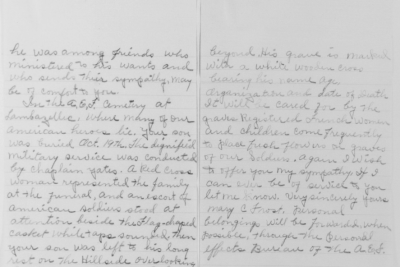 he was among friends who
ministered to his wants and
who sends their sympathy, may
be of comfort to you
In the A.E.F. Cemetery at
Lambezellec, where many of our
American heroes lie, your son
was buried Oct. 19th. The dignified
military service was conducted
by Chaplain Yates. A Red Cross
Woman represented the family
at the funeral, and an escort of
American soldiers stood at
attention beside the flag-draped
casket while taps sounded, then
your son was left to his long
rest on the Hillside overlooking
Beyond His grave is marked
with a white wooden cross
bearing his name age
organization and date of Death
It will be cared for by the
graves Registered French Women
and children come frequently
to place fresh flowers on graves
of our soldiers. Again I wish
to offer you my sympathy. If I
can ever be of service to you
let me know. Very sincerely yours
Mary C. Frost. Personal
belongings will be forwarded, when
possible, through the Personal
effects Bureau of the A.E.F.